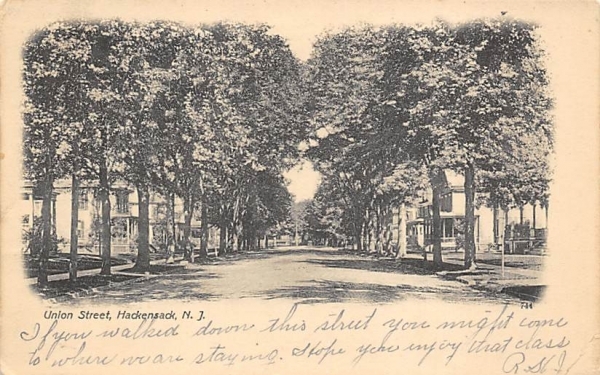 Union Street, Hackensack, N. J.
If you walked down this street you might come
to where we are staying. Hope you enjoy that class